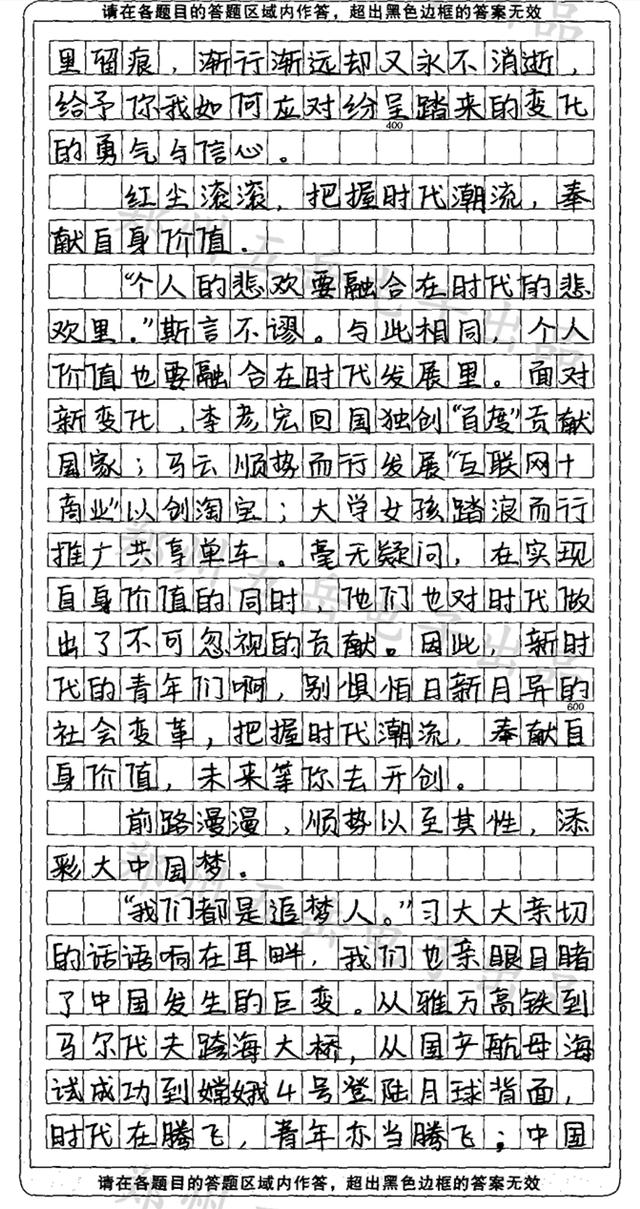 请在各题目的答题区域内作答，超出黑色边框的答案无效
里留痕，渐行渐远却又永不消逝，
给予你我如何应对纷呈踏来的变化
400
的勇气与信心。
红尘滚滚，把握时代潮流，奉
献自身价值.
“个人的悲欢要融合在时代的悲
欢里.”斯言不谬。与此相同，个人
价值也要融合在时代发展里。面对
新变化，李彦宏回国独创“百度”贡献
国家；马云顺势而行发展“互联网十
商业”以创淘宝；大学女孩踏浪而行
推广共享单车。毫无疑问，在实现
自身价值的同时，他们也对时代做
出了不可忽视的贡献。因此，新时
代的青年们啊，别惧怕日新月异的
600
社会变革，把握时代潮流，奉献自
身价值，未来等你去开创。
前路漫漫，顺势以至其性，添
彩大中国梦.
“我们都是追梦人。”习大大亲切
的话语响在耳畔，我们也亲眼目睹
了中国发生的巨变。从雅万高铁到
马尔代夫跨海大桥，从国产航母海
试成功到嫦娥4号登陆月球背面，
时代在腾飞，青年亦当腾飞；中国
请在各题目的答题区域内作答，超出黑色边框的答案无效
郑州五岳电子出品
郑州五岳电子出品
郑州五岳电子出品